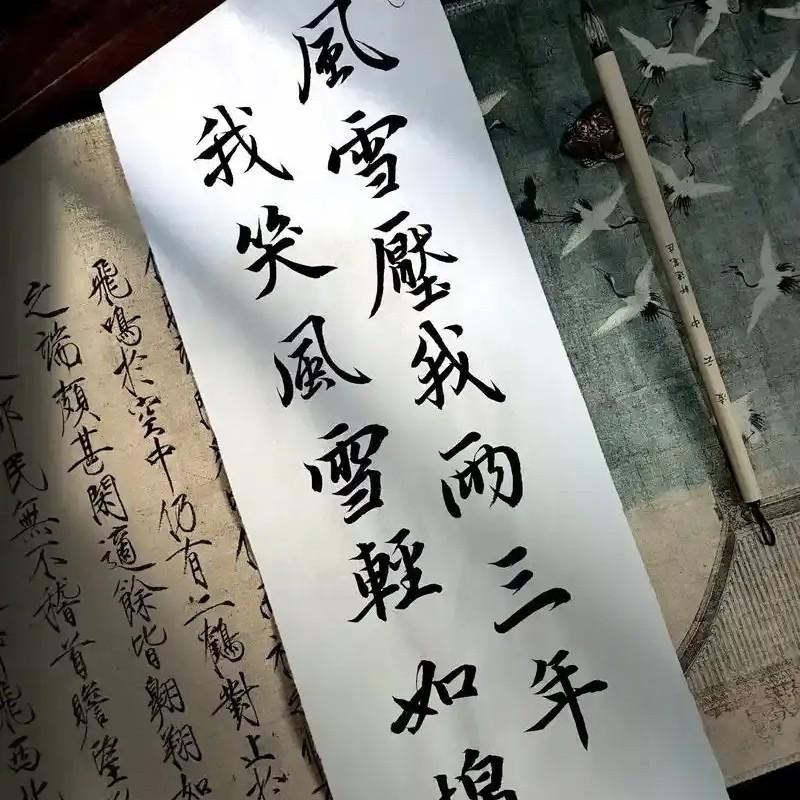 風雪壓我兩三年
我笑風雪輕如棉
飛鳴於空中仍有二鶴對止於
之端頗甚閑適餘皆翱翔如
都民無不稽首瞻望
飛西北